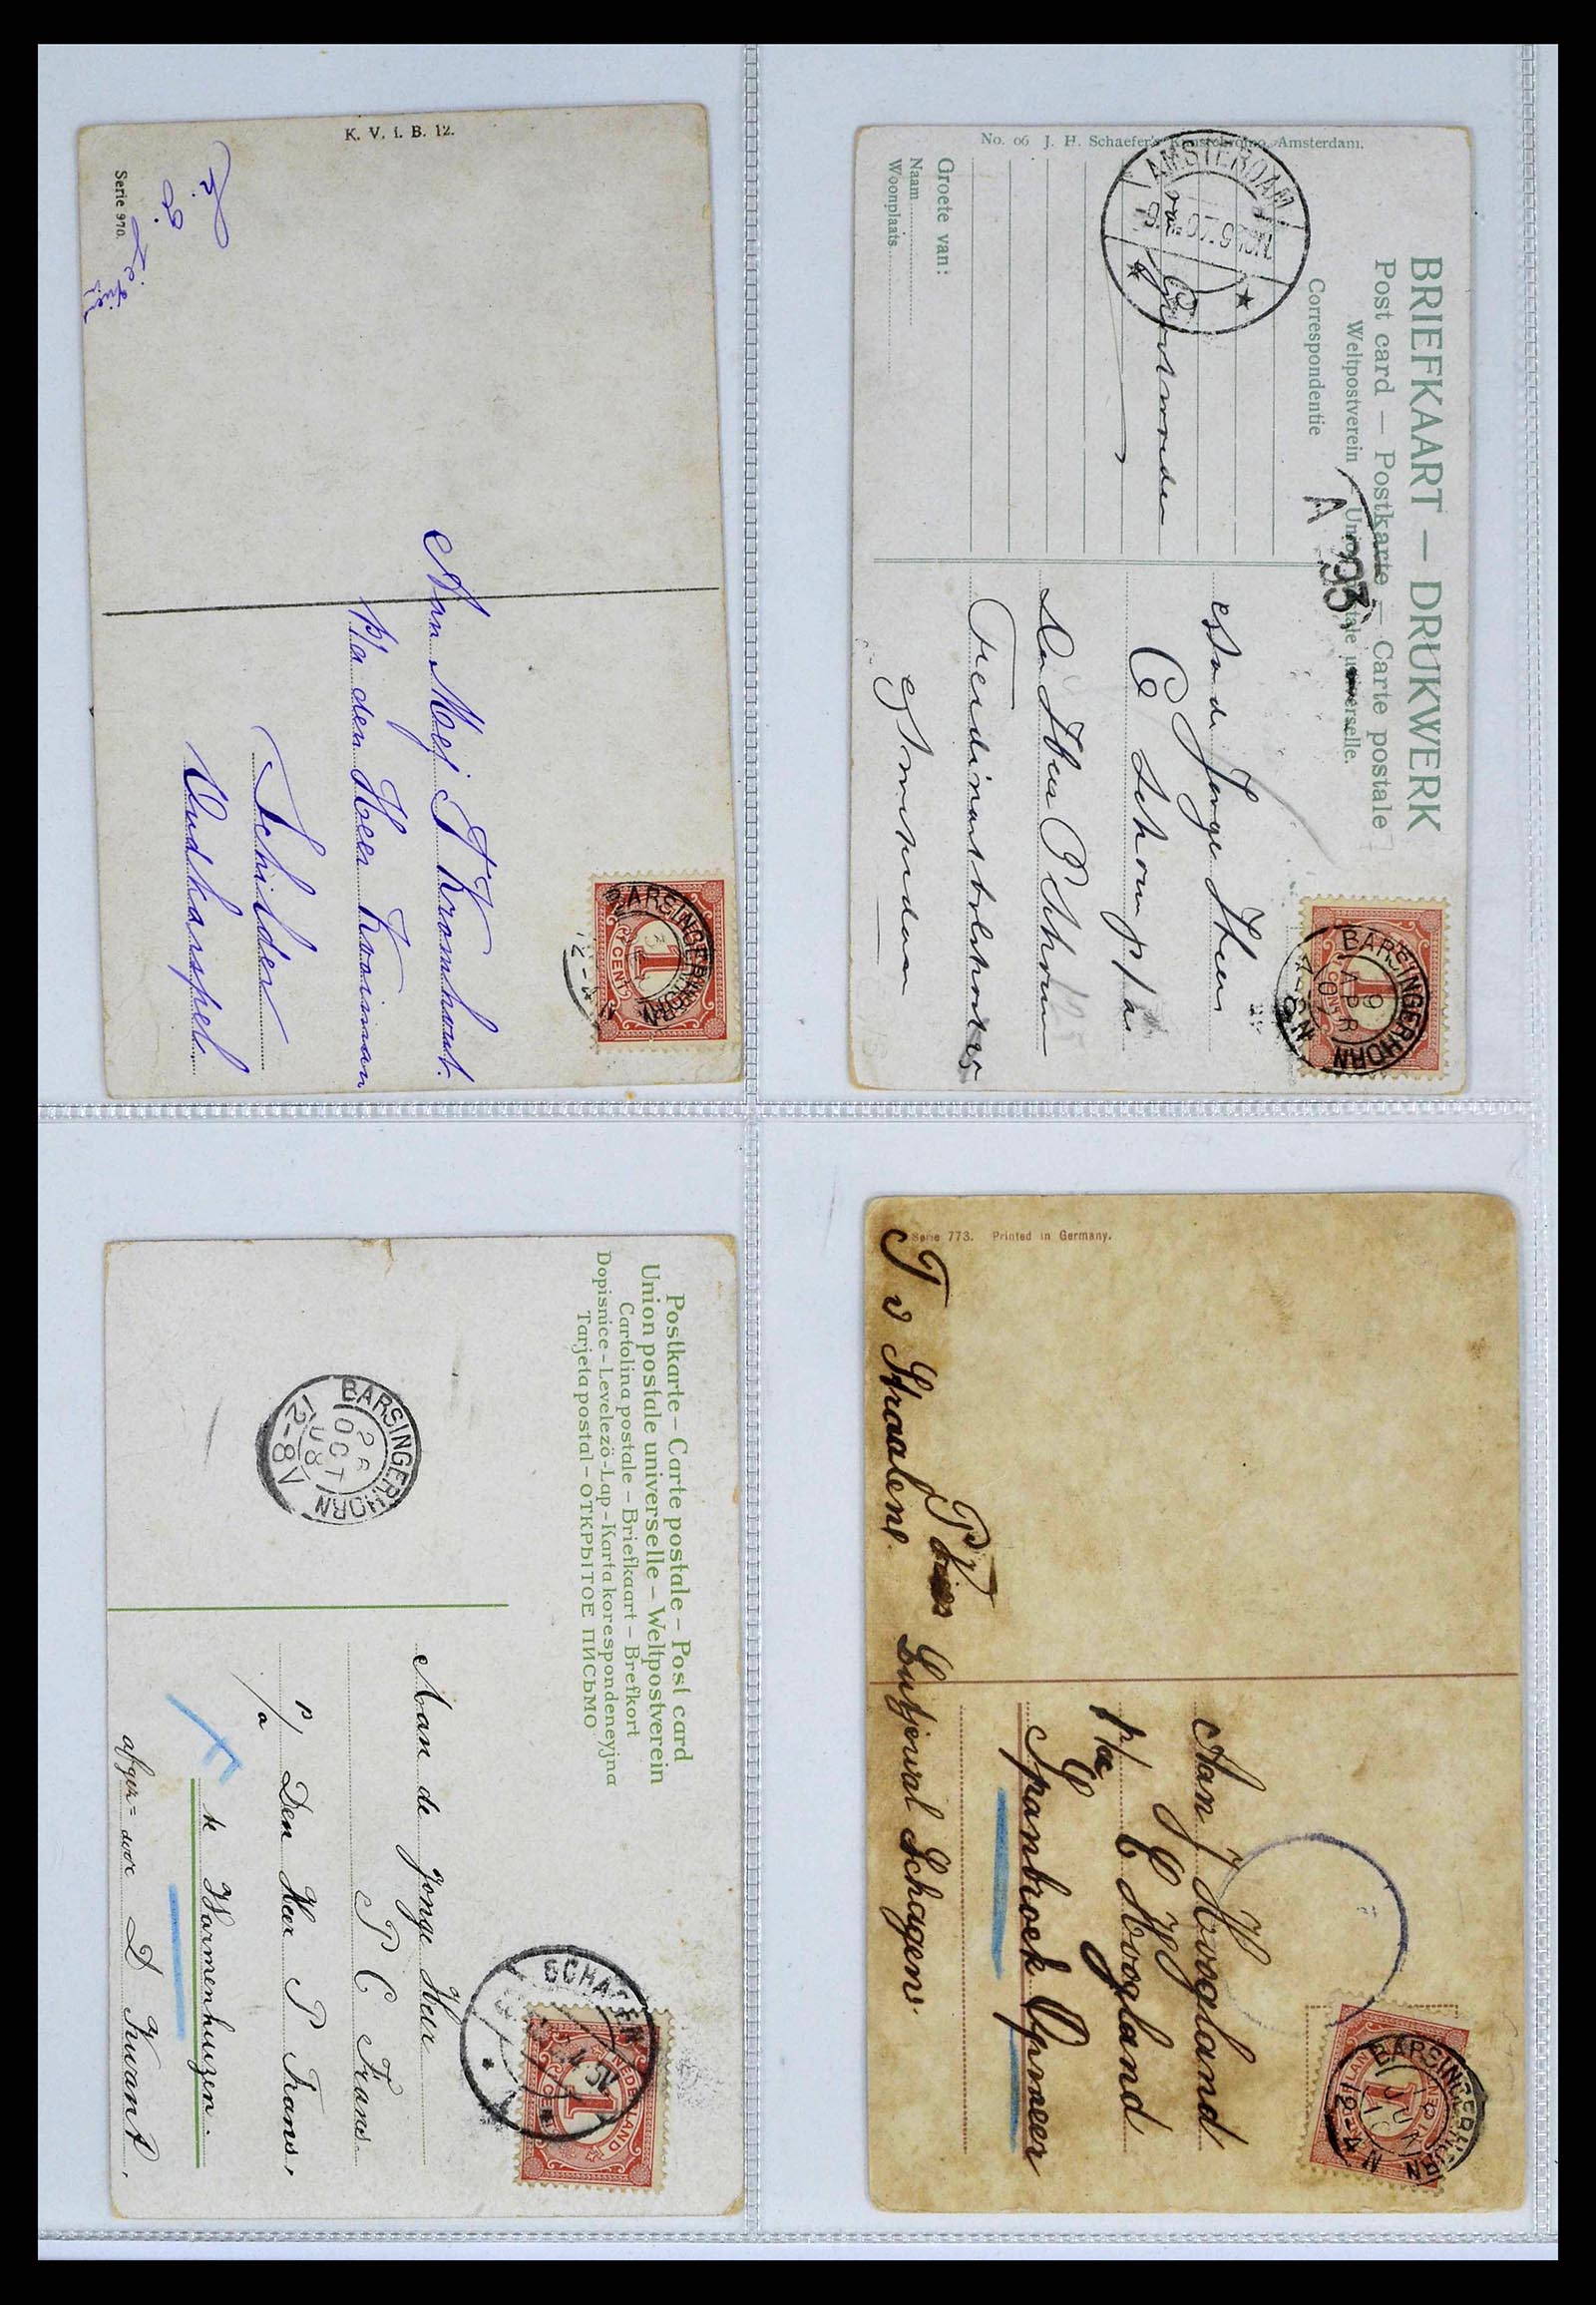 K. V. i. B. 12.
Serie 970.
Aan Mej T Kromhout.
p/a den Heer K Kooiman
Schilder
Oudkarspel
BARSINGERHORN
12-4 N
1 CENT
No. 66 J. H. Schaefer's Kunstchromo, Amsterdam.
BRIEFKAART — DRUKWERK
Post card — Postkarte — Carte postale
Weltpostverein Union postale universelle.
Correspondentie
A 93
Groete van:
Naam
Woonplaats
AMSTERDAM
BARSINGERHORN
9 APR 07
C Schoun p/a
den Heer P Schoun
Ferdinand bolstraat
Amsterdam
Postkarte – Carte postale – Post card
Union postale universelle – Weltpostverein
Cartolina postale – Briefkaart – Brefkort
Dopisnice – Levelező-Lap – Karta korespondeneyjna
Tarjeta postal – ОТКРЫТОЕ ПИСЬМО
BARSINGERHORN
26 OCT 08
12-8 V
SCHAGEN
NEDERLAND
1 CENT
Aan de jonge Heer
P C Frans
p/a Den Heer P Frans,
te Warmenhuizen.
afgez= door D Kwant.
Serie 773. Printed in Germany.
T v Straalen
P Vries
Lutjewal Schagen.
Aan J Hoogland
p/a C Hoogland
Spanbroek Opmeer
BARSINGERHORN
JUN 10
12-4 N